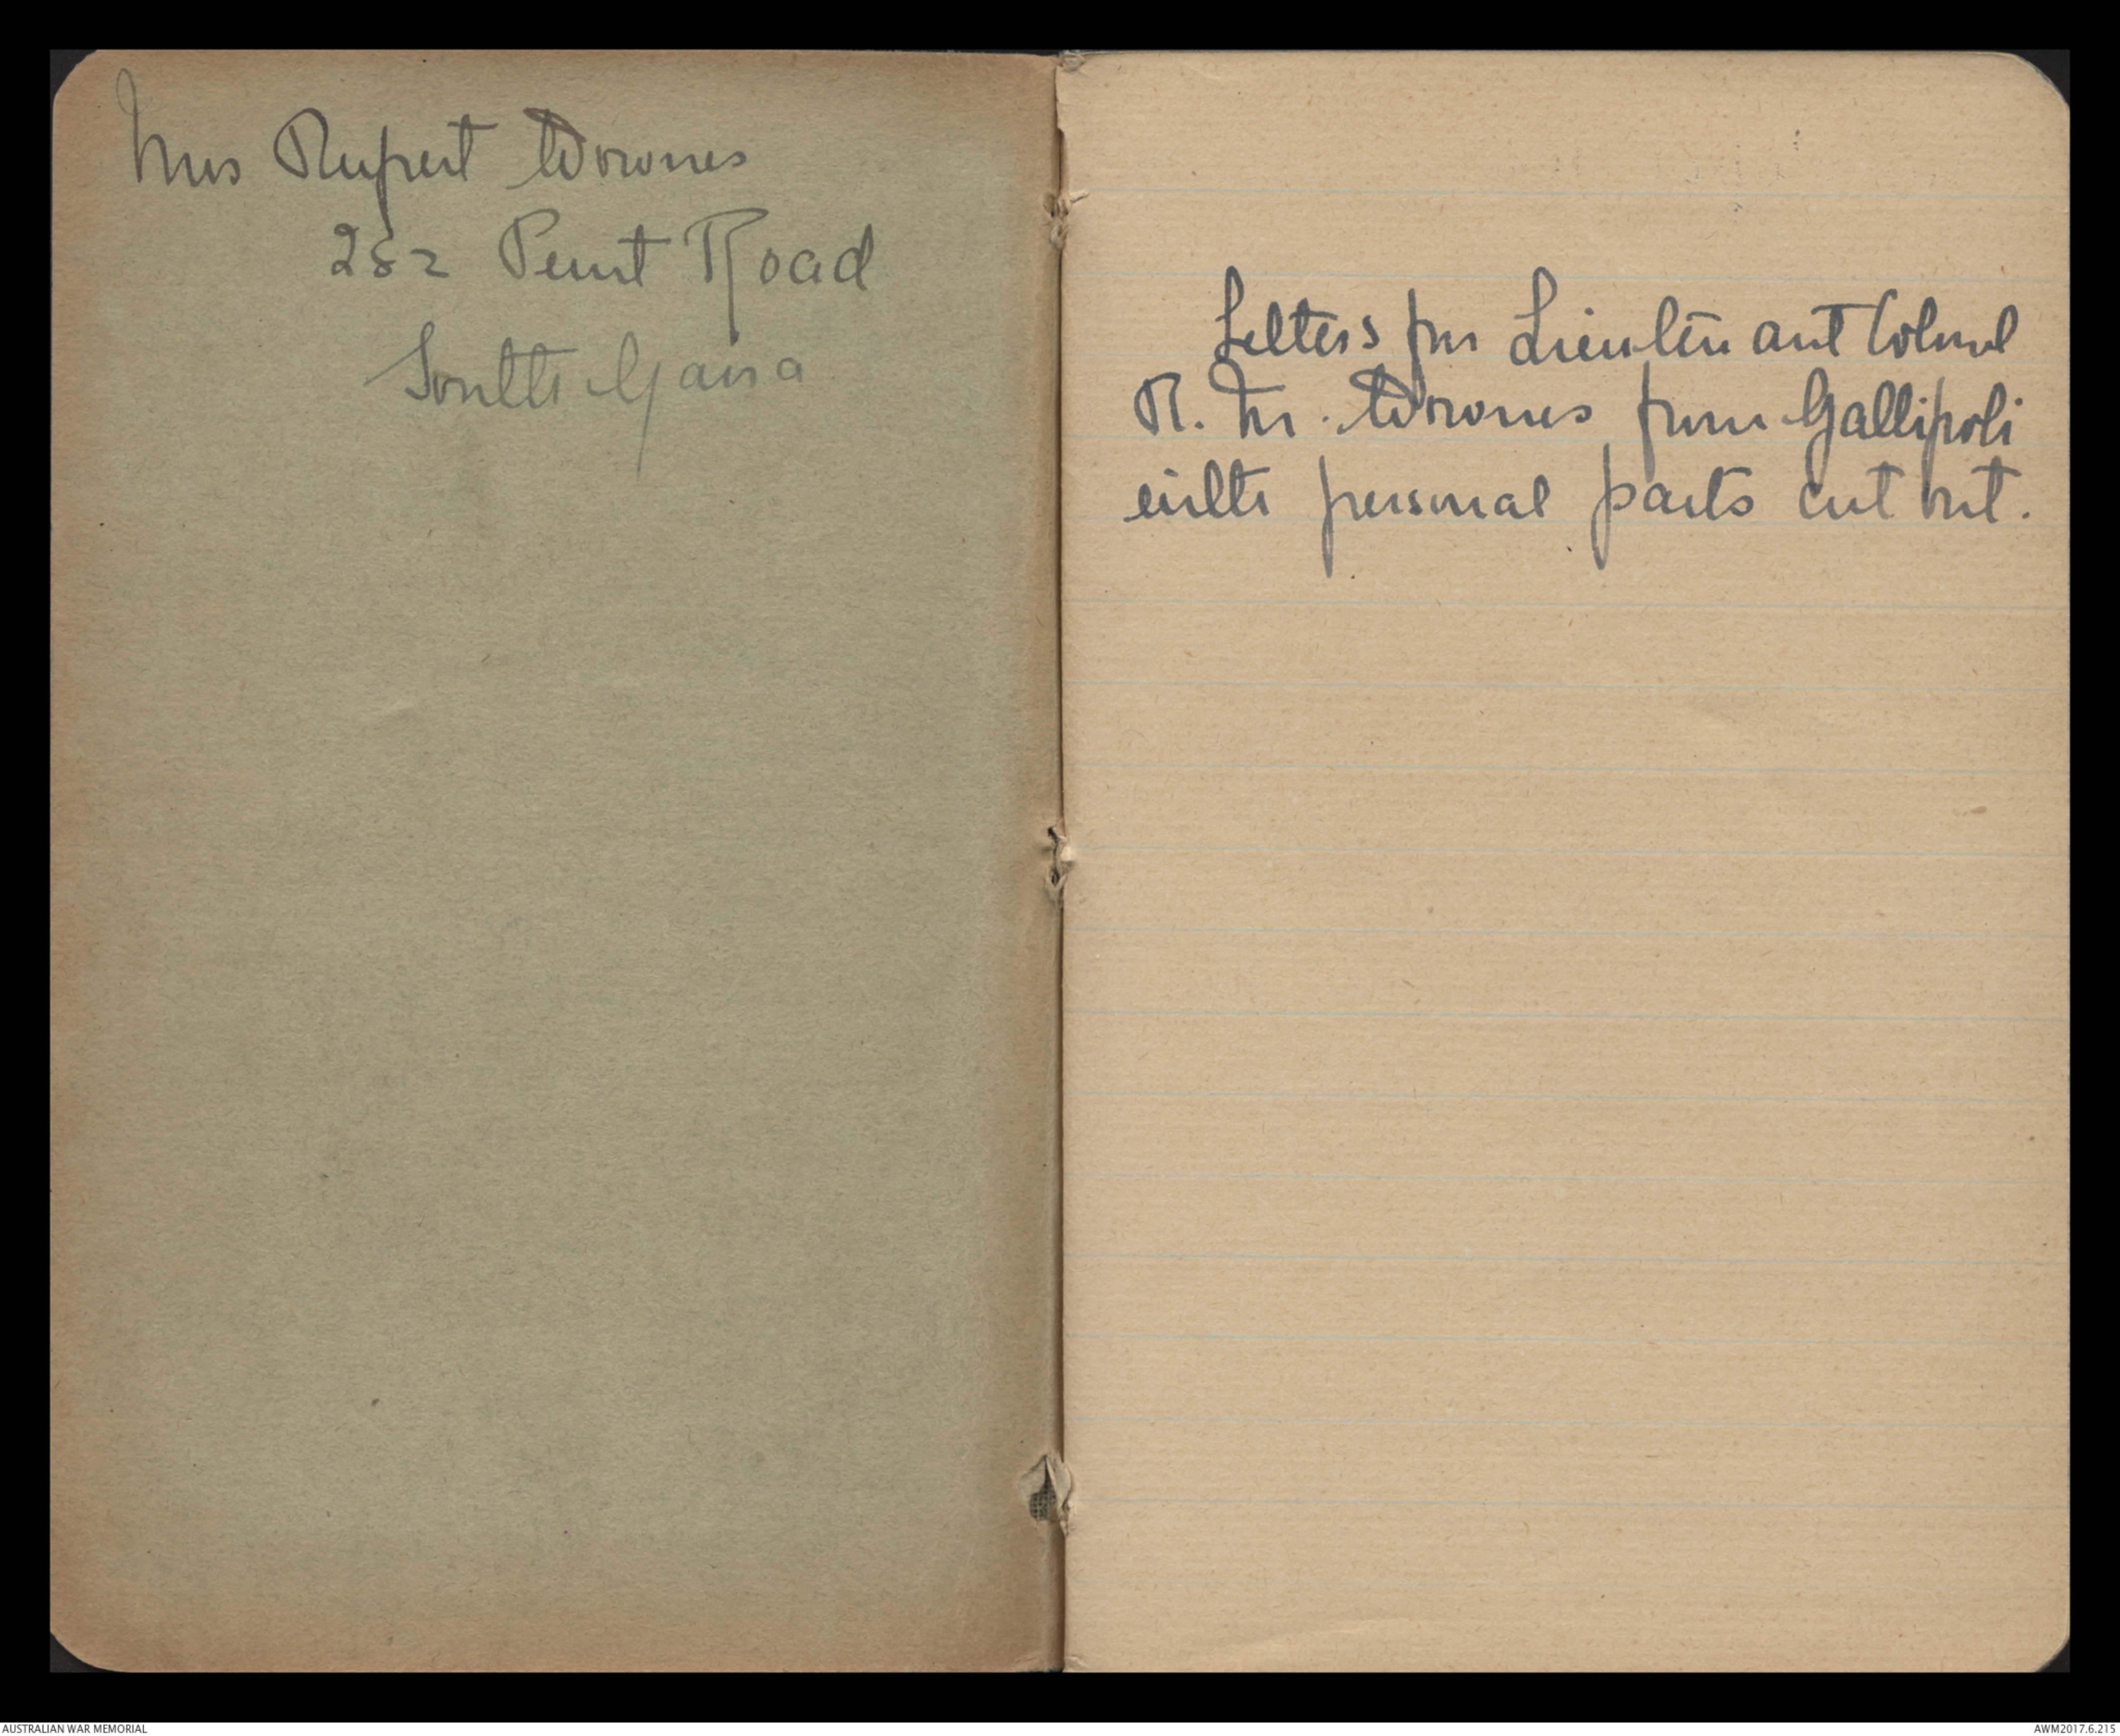 Mrs Rupert Downes
282 Punt Road
South Yarra
Letters from Lieutenant Colonel
R. M. Downes from Gallipoli
with personal parts cut out.
AUSTRALIAN WAR MEMORIAL
AWM2017.6.215